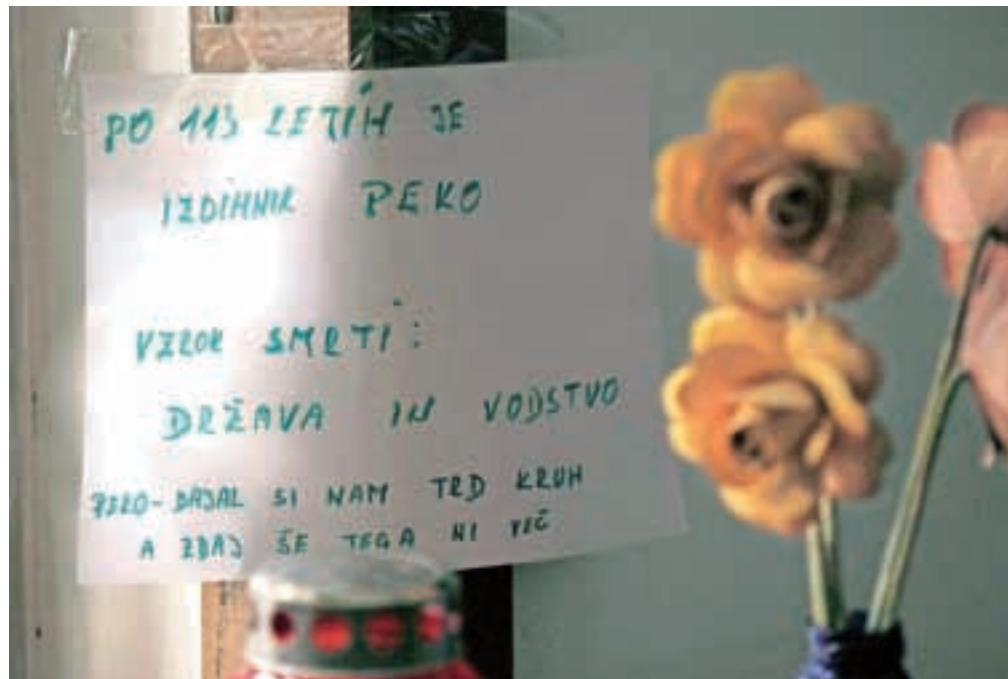 PO 113 LETIH JE
IZDIHNIL PEKO
VZROK SMRTI:
DRŽAVA IN VODSTVO
PEKO-DAJAL SI NAM TRD KRUH
A ZDAJ ŠE TEGA NI VEČ